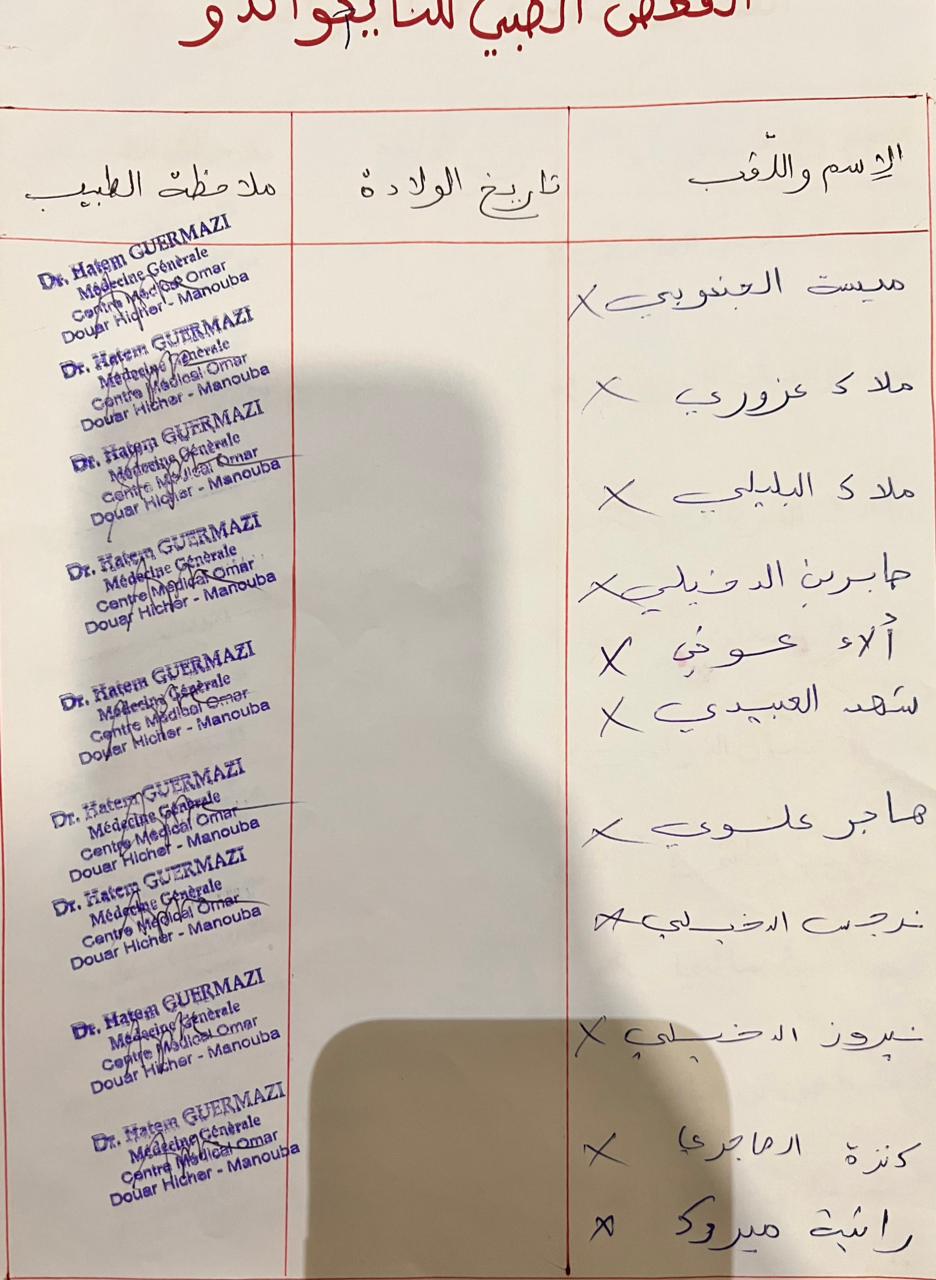 الفحص الطبي للتايكواندو
الإسم واللّقب
تاريخ الولادة
ملاحظة الطبيب
ميسة الجنوبي X
ملاك عزوري X
ملاك البليلي X
صابرين الدخيلي X
ألاء عوني X
شهد العبيدي X
هاجر علوي X
نرجس الدخيلي X
نيروز الدخيلي X
كنزة الهاجري X
رانية مبروك X
Dr. Hatem GUERMAZI
Médecine Générale
Centre Médical Omar
Douar Hicher - Manouba
Dr. Hatem GUERMAZI
Médecine Générale
Centre Médical Omar
Douar Hicher - Manouba
Dr. Hatem GUERMAZI
Médecine Générale
Centre Médical Omar
Douar Hicher - Manouba
Dr. Hatem GUERMAZI
Médecine Générale
Centre Médical Omar
Douar Hicher - Manouba
Dr. Hatem GUERMAZI
Médecine Générale
Centre Médical Omar
Douar Hicher - Manouba
Dr. Hatem GUERMAZI
Médecine Générale
Centre Médical Omar
Douar Hicher - Manouba
Dr. Hatem GUERMAZI
Médecine Générale
Centre Médical Omar
Douar Hicher - Manouba
Dr. Hatem GUERMAZI
Médecine Générale
Centre Médical Omar
Douar Hicher - Manouba
Dr. Hatem GUERMAZI
Médecine Générale
Centre Médical Omar
Douar Hicher - Manouba